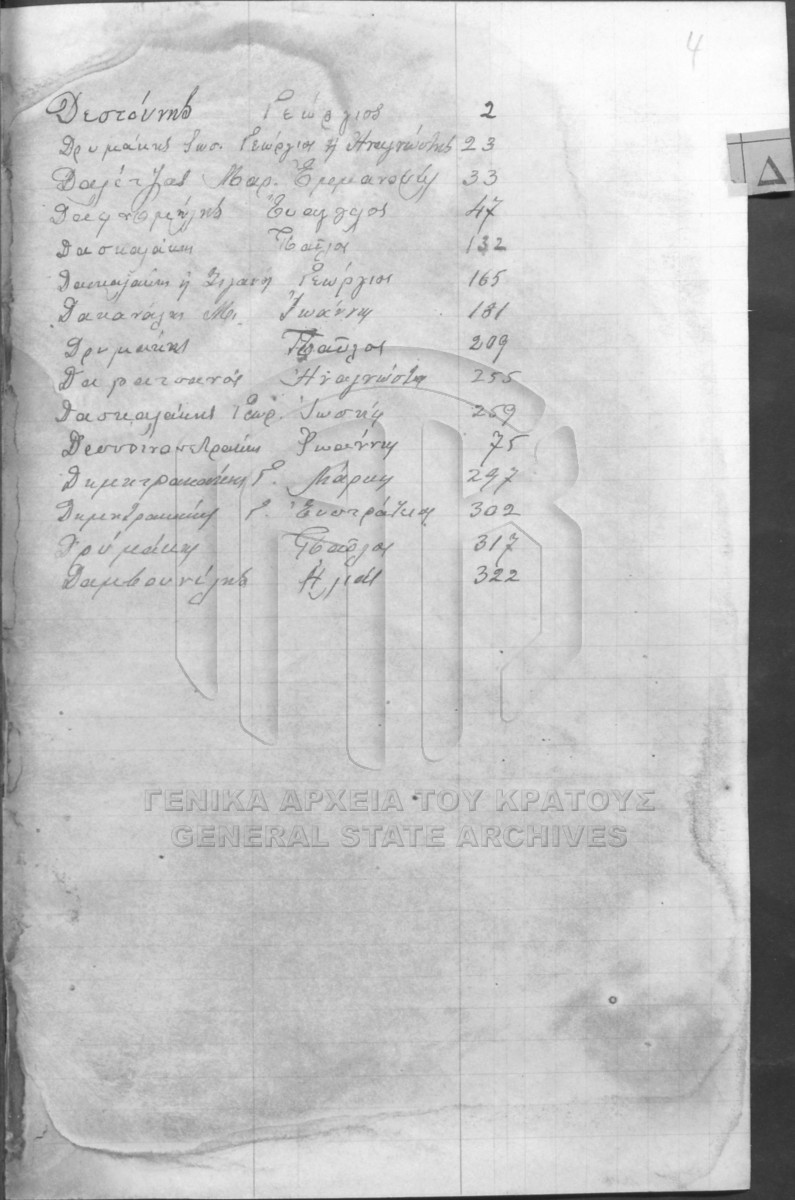 4
Δεστούνης Γεώργιος 2
Δρυμάκης Ιωσ. Γεώργιος ή Αναγνώστης 23
Δαλέτζας Μαρ. Εμμανουήλ 33
Ευάγγελος 47
Δασκαλάκης Παύλος 132
Δασκαλάκης ή Γεώργιος 165
Δακανάλης Μι. Ιωάννης 181
Δρυμάκης Παύλος 209
Δαρατσανός Αναγνώστης 255
Δασκαλάκης Γεωρ. Ιωσήφ 259
Ιωάννης 75
Δημητρακάκης Γ. Μάρκος 297
Δημητρακάκης Γ. Ευστράτιος 302
Δρυμάκης Παύλος 317
Δαμβουνέλης Ηλίας 322
Δ
ΓΕΝΙΚΑ ΑΡΧΕΙΑ ΤΟΥ ΚΡΑΤΟΥΣ
GENERAL STATE ARCHIVES